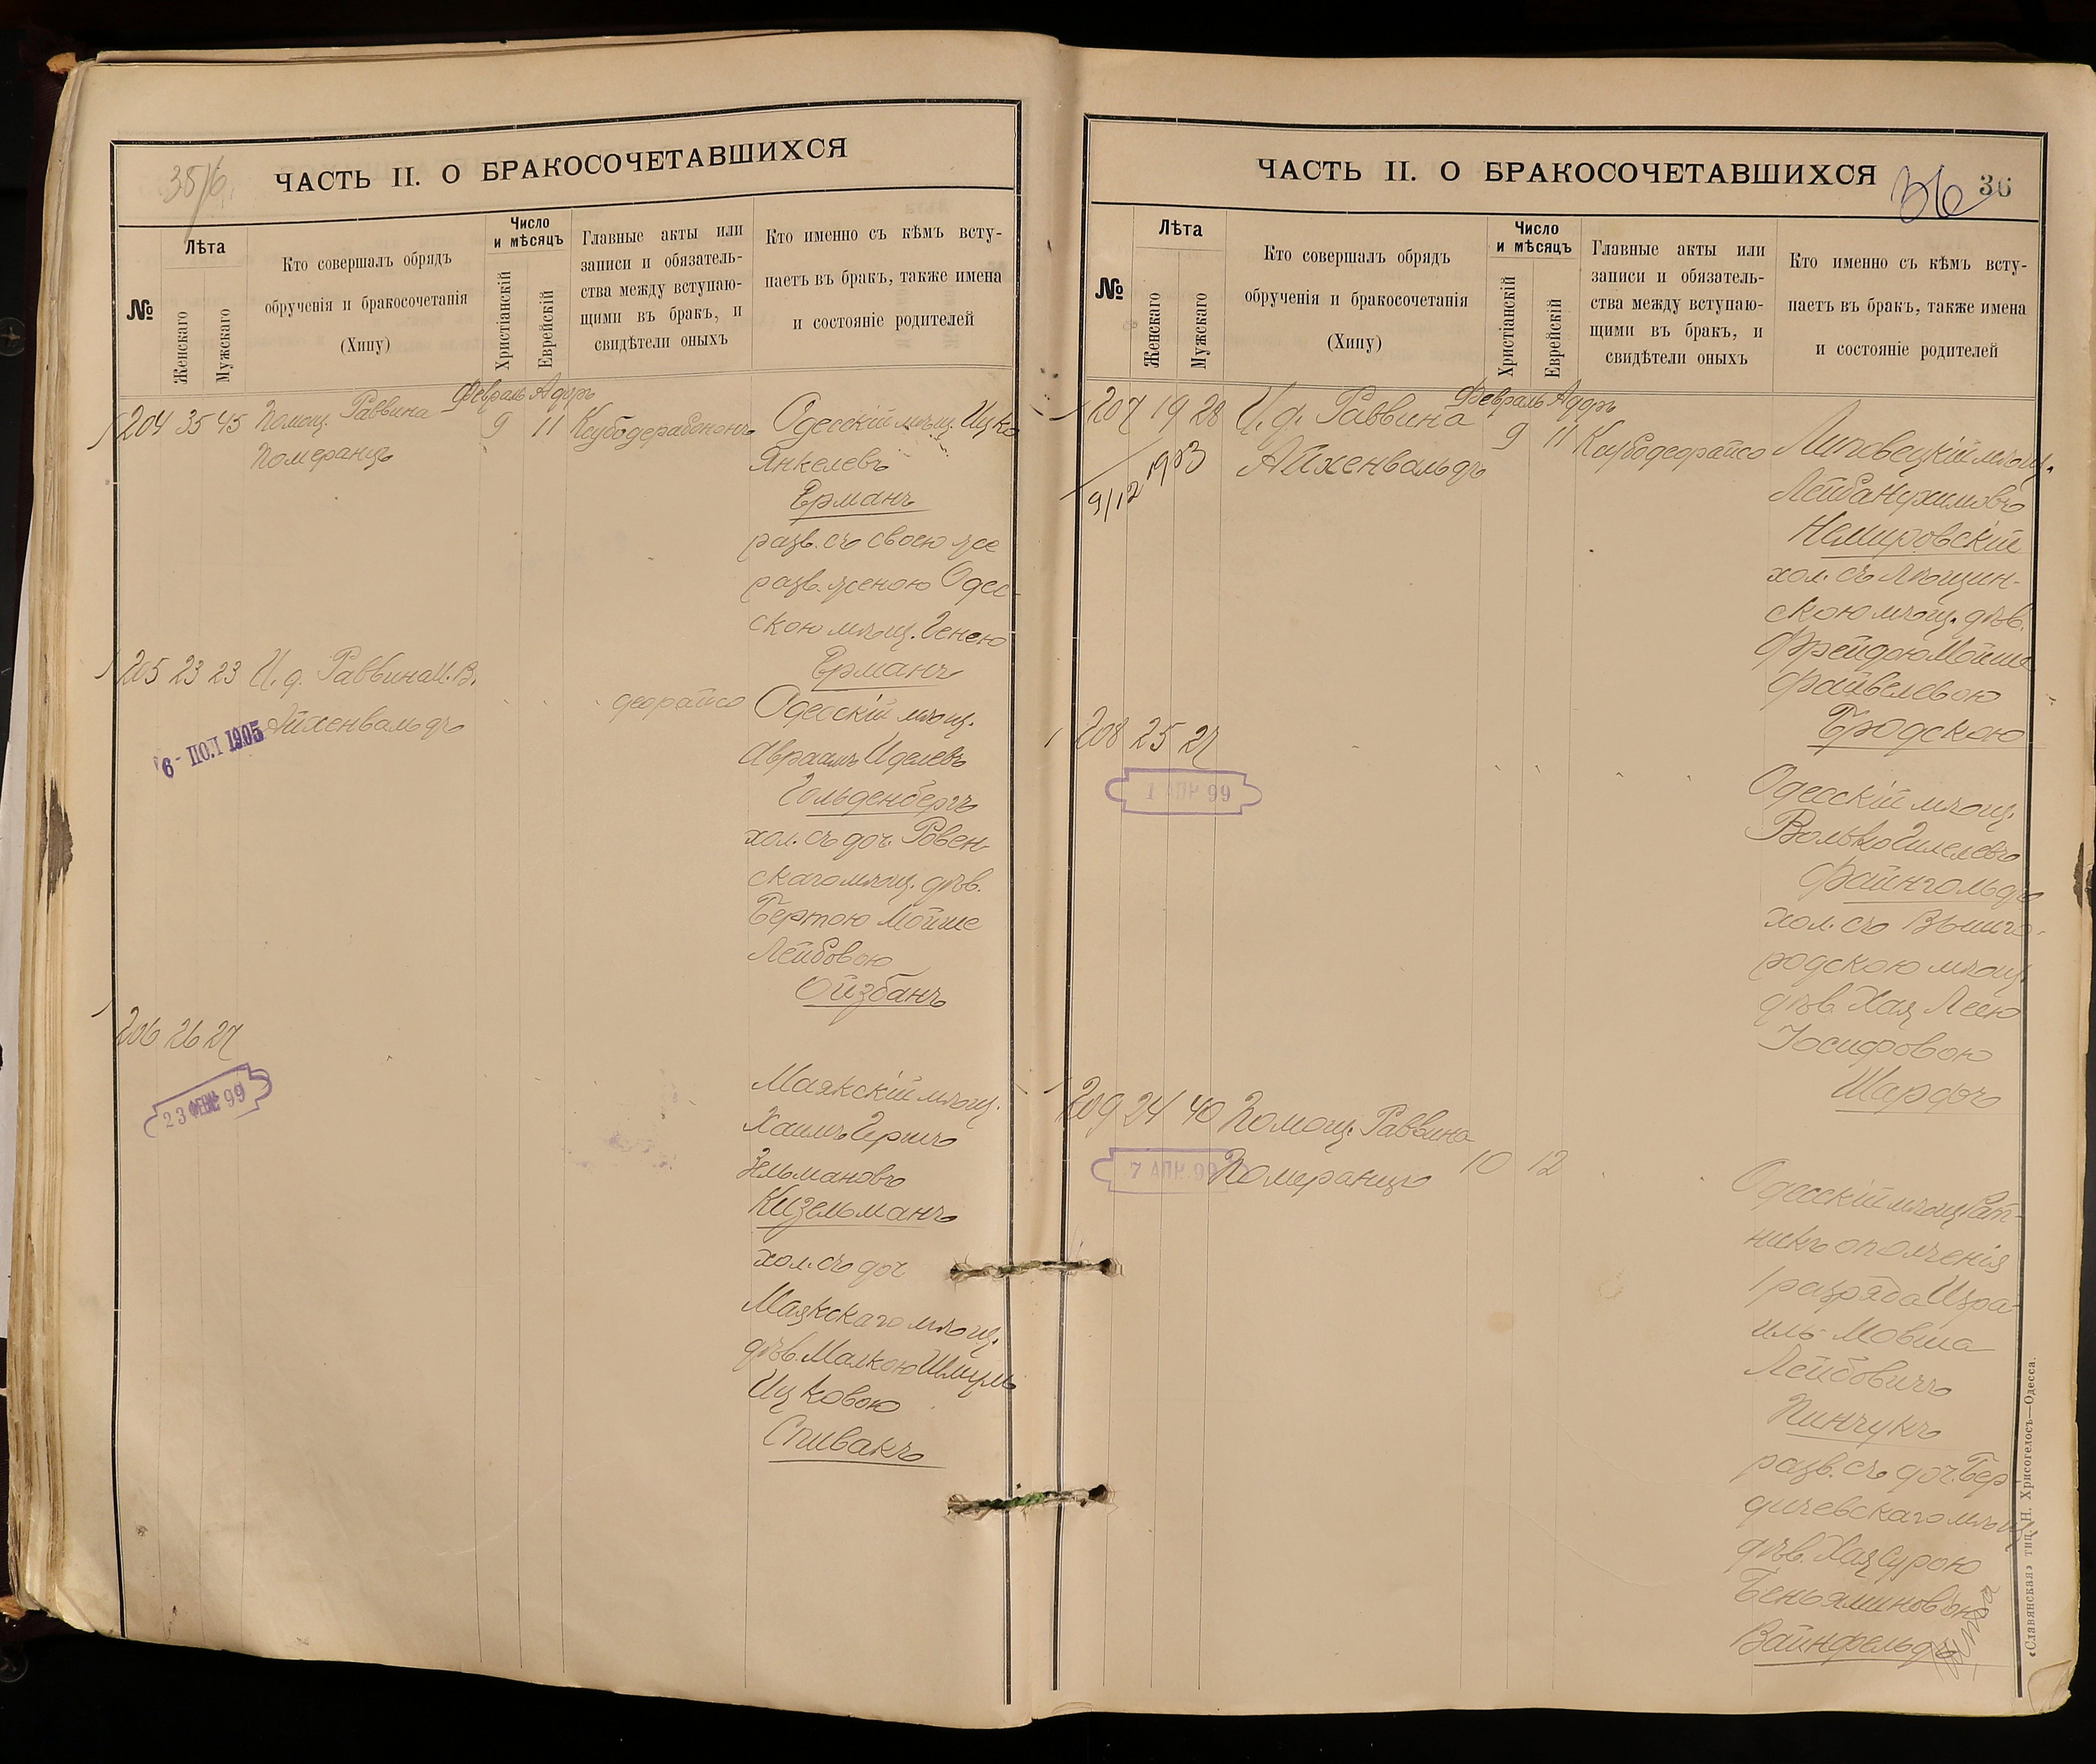 35/б.
ЧАСТЬ II. О БРАКОСОЧЕТАВШИХСЯ
№
Лѣта
Женскаго
Мужскаго
Кто совершалъ обрядъ
обрученія и бракосочетанія
(Хипу)
Число
и мѣсяцъ
Христіанскій
Еврейскій
Главные акты или
записи и обязатель-
ства между вступаю-
щими въ бракъ, и
свидѣтели оныхъ
Кто именно съ кѣмъ всту-
паетъ въ бракъ, также имена
и состояніе родителей
Февраль Адаръ
204 35 45 Помощ. Раввина 9 11
Померанцъ
Одесскій мѣщ. Ицко
Янкелевъ
Ерманъ
разв. съ своею же
разв. женою Одес-
скою мѣщ. Генею
Ерманъ
205 23 23 И. д. Раввина И. В.
Айхенвальдъ
6 - ПОЛ 1905
деорайсо
Одесскій мѣщ.
Авраамъ Иделевъ
Гольденбергъ
хол. съ доч. Ровен-
скаго мѣщ. дѣв.
Бертою Мойше
Лейбовою
Ойзбанъ
206 26 27
23 ФЕВР 99
Маякскій мѣщ.
Хаимъ Гершъ
Зельмановъ
Кизельманъ
хол. съ доч
Маякскаго мѣщ.
дѣв. Малкою Шмуль
Ицковою
Спивакъ
ЧАСТЬ II. О БРАКОСОЧЕТАВШИХСЯ
36 36
№
Лѣта
Женскаго
Мужскаго
Кто совершалъ обрядъ
обрученія и бракосочетанія
(Хипу)
Число
и мѣсяцъ
Христіанскій
Еврейскій
Главные акты или
записи и обязатель-
ства между вступаю-
щими въ бракъ, и
свидѣтели оныхъ
Кто именно съ кѣмъ всту-
паетъ въ бракъ, также имена
и состояніе родителей
Февраль Адаръ
207 19 28 И. д. Раввина 9 11
Айхенвальдъ
9/12 1903
Липовецкій мѣщ.
Лейба Нухимовъ
Немировскій
хол. съ
скою мѣщ. дѣв.
Фрейдою Мойше
Файвелевою
Бродскою
208 25 27
1 АПР 99
Одесскій мѣщ.
Волько Гилелевъ
Файнгольдъ
хол. съ Вышго-
родскою мѣщ.
дѣв. Хая Леею
Іосифовою
Шарфъ
209 24 40 Помощ. Раввина
Померанцъ 10 12
7 АПР 99
Одесскій мѣщ Рат-
никъ ополченія
1 разряда Изра-
иль-Мовша
Лейбовичъ
Пинчукъ
разв. съ доч. Бер
дичевскаго мѣщ
дѣв. Хая Сурою
Беньяминовою
Вайнфельдъ
«Славянская» тип. Н. Хрисогелосъ—Одесса.